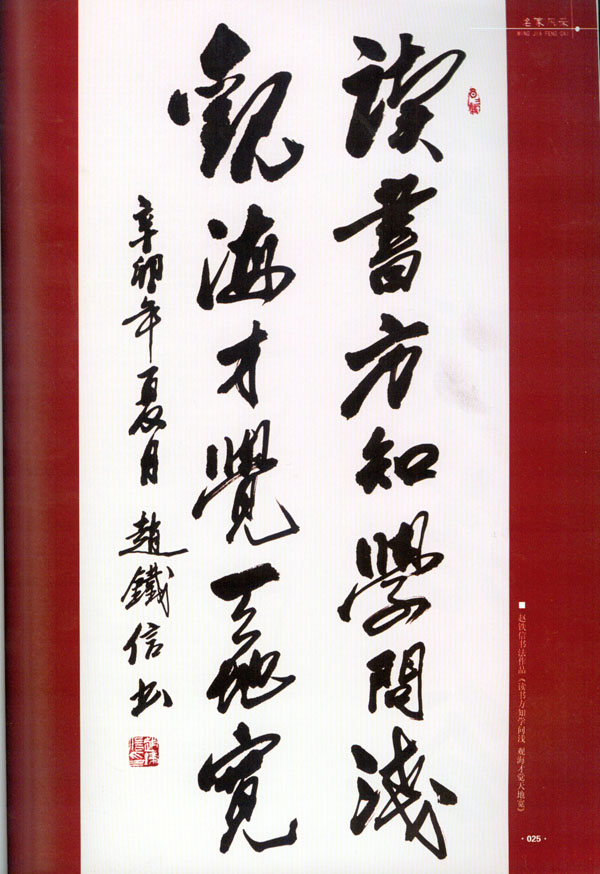 名家风采
MING JIA FENG CAI
读書方知學問淺
觀海才覺天地寬
辛卯年夏月 趙鐵信书
■ 赵铁信书法作品《读书方知学问浅 观海才觉天地宽》
· 025 ·